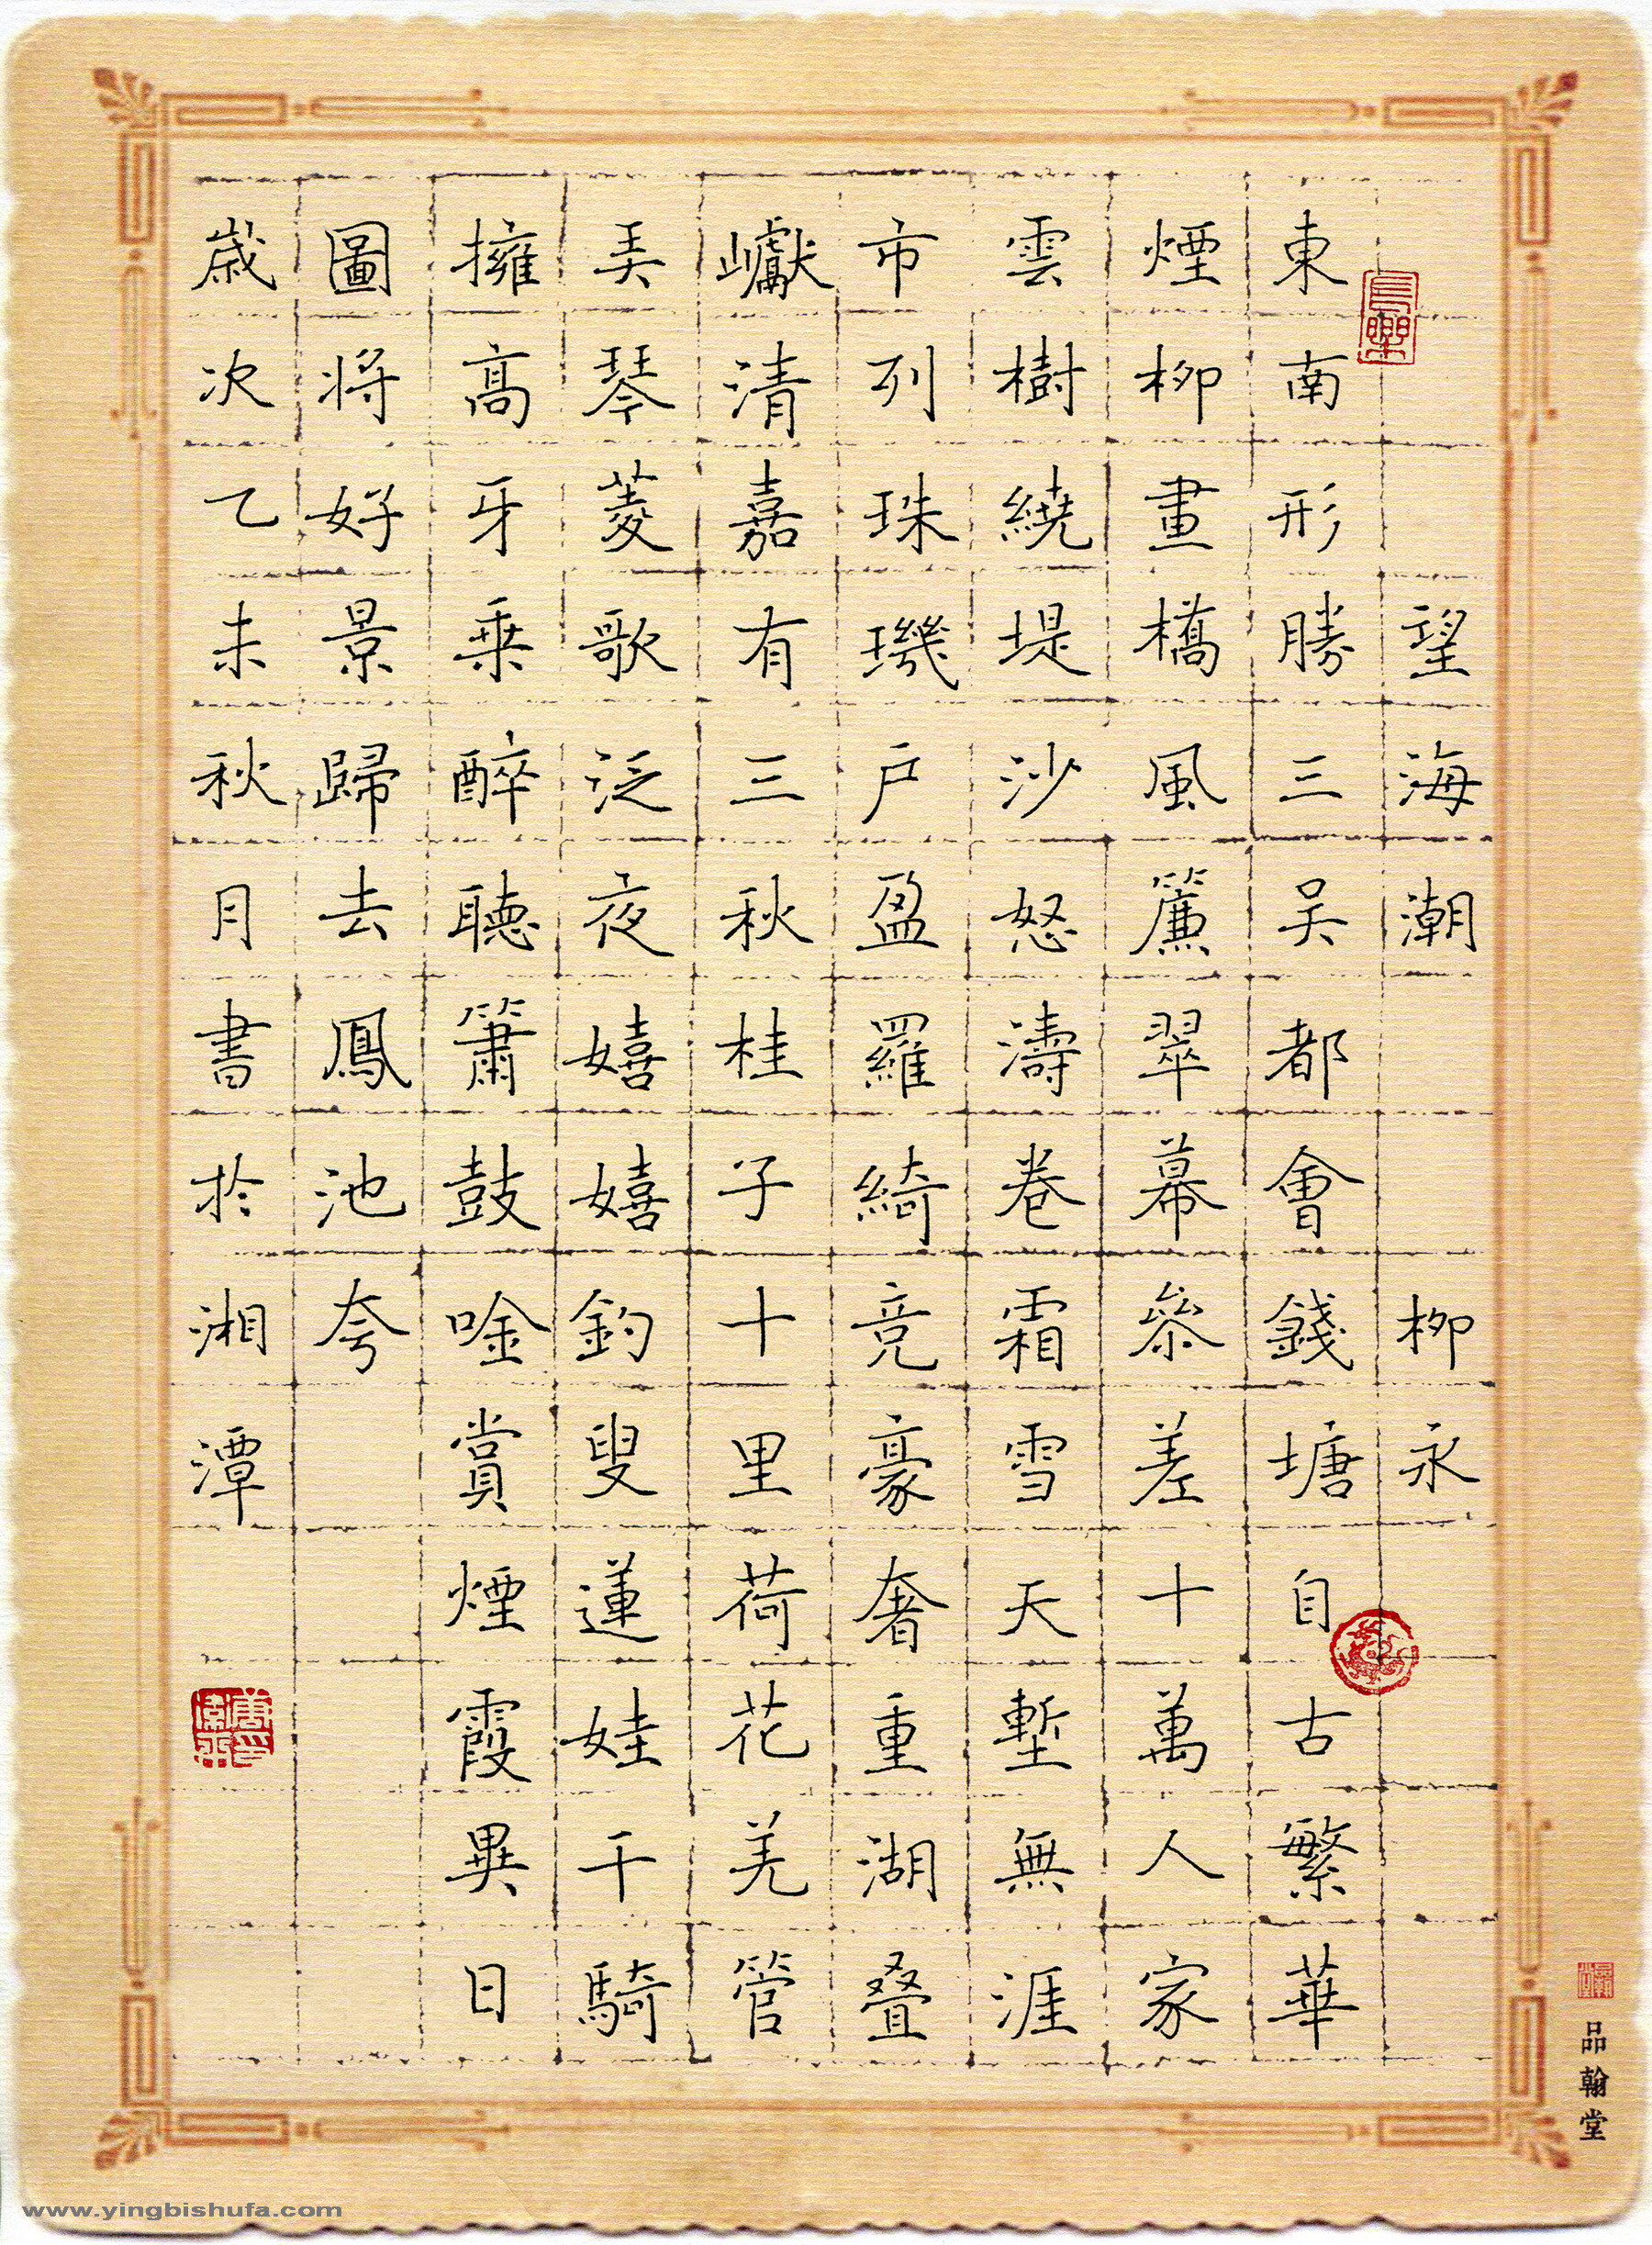 望海潮 柳永
東南形勝三吴都會錢塘自古繁華
煙柳畫橋風簾翠幕参差十萬人家
雲樹繞堤沙怒濤卷霜雪天塹無涯
市列珠璣户盈羅綺竞豪奢重湖叠
巘清嘉有三秋桂子十里荷花羌管
弄琴菱歌泛夜嬉嬉釣叟蓮娃千騎
擁高牙乘醉聽簫鼓唫賞煙霞異日
圖将好景歸去鳳池夸
歲次乙未秋月書於湘潭
品翰堂
www.yingbishufa.com